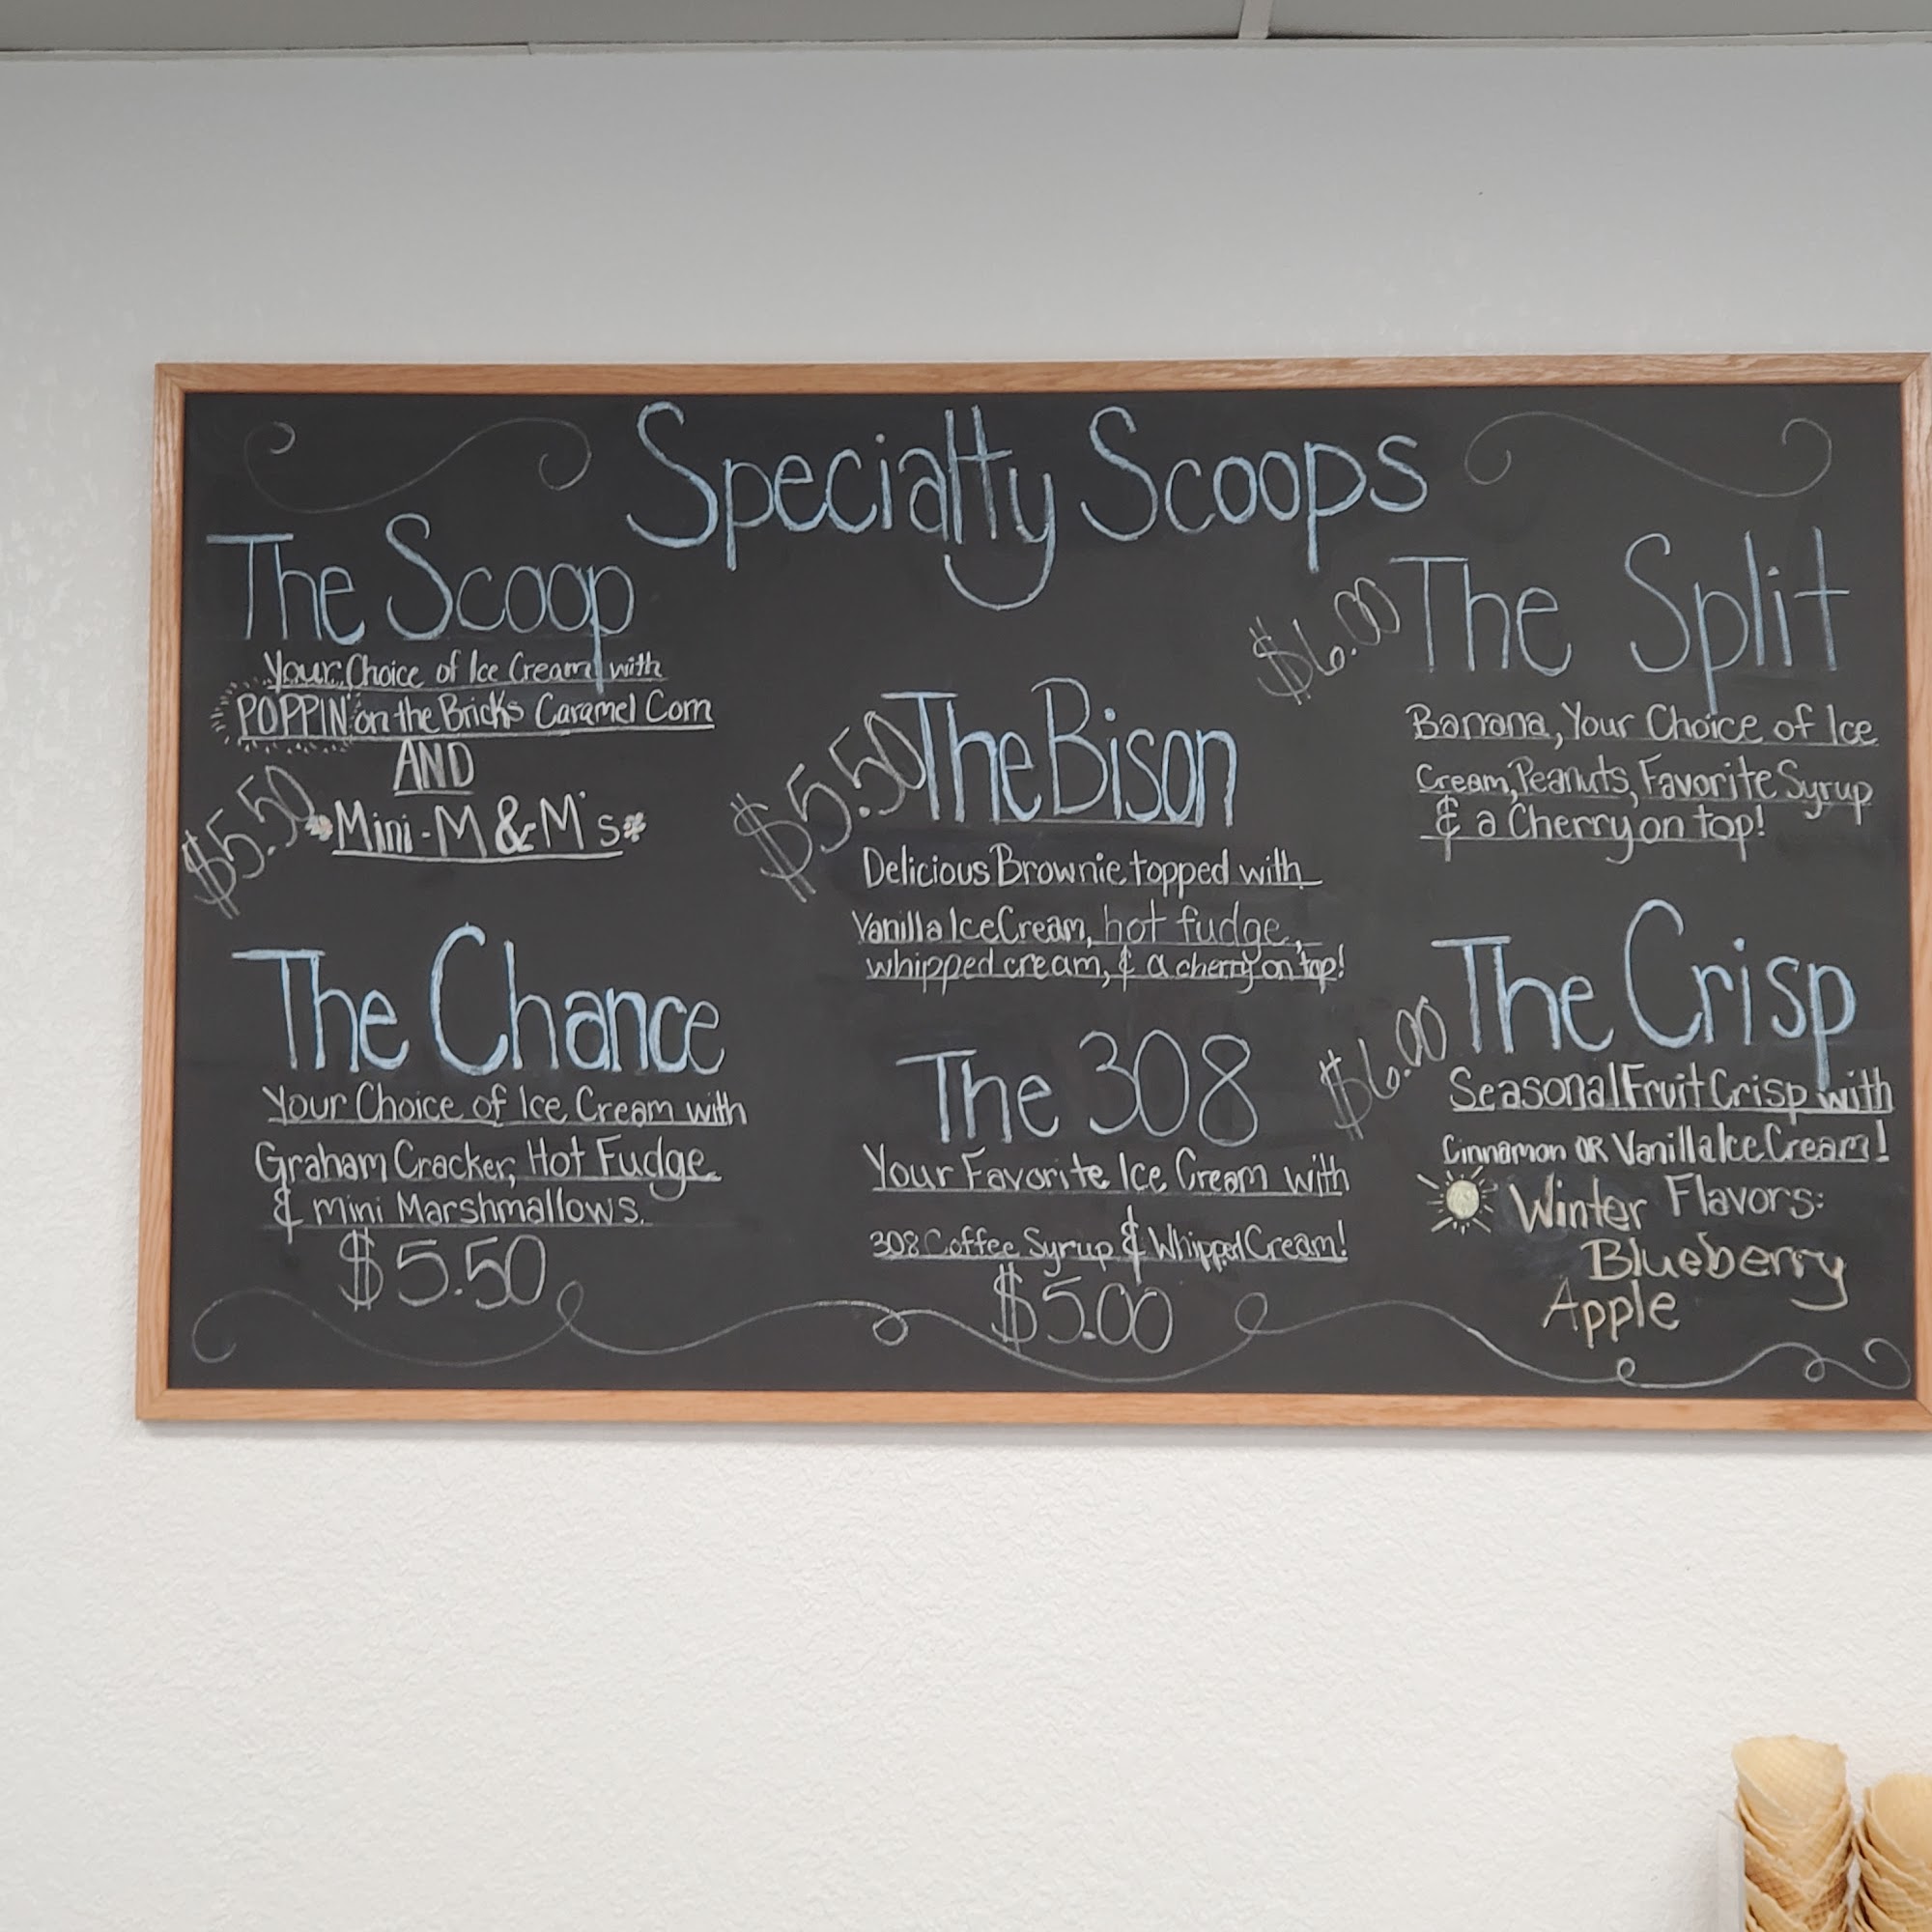 Specialty Scoops
The Scoop
Your Choice of Ice Cream with
POPPIN' on the Bricks Caramel Corn
AND
Mini-M&M's
$5.50
The Chance
Your Choice of Ice Cream with
Graham Cracker, Hot Fudge
& mini Marshmallows.
$5.50
$5.50
The Bison
Delicious Brownie topped with
Vanilla Ice Cream, hot fudge,
whipped cream, & a cherry on top!
The 308
Your Favorite Ice Cream with
308 Coffee Syrup & Whipped Cream!
$5.00
$6.00
The Split
Banana, Your Choice of Ice
Cream, Peanuts, Favorite Syrup
& a Cherry on top!
$6.00
The Crisp
Seasonal Fruit Crisp with
Cinnamon OR Vanilla Ice Cream!
Winter Flavors:
Blueberry
Apple